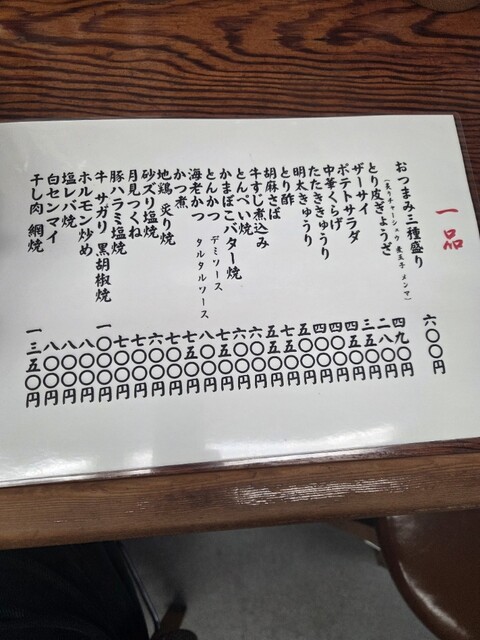 一品
おつまみ三種盛り 六〇〇円
(炙りチャーシュウ 煮玉子 メンマ)
とり皮ぎょうざ 四九〇円
ザーサイ 二八〇円
ポテトサラダ 三五〇円
中華くらげ 四五〇円
たたききゅうり 四〇〇円
明太きゅうり 四〇〇円
とり酢 五〇〇円
胡麻さば 七五〇円
牛すじ煮込み 五五〇円
とんぺい焼 六〇〇円
かまぼこバター焼 六〇〇円
とんかつ デミソース 七五〇円
海老かつ タルタルソース 八〇〇円
かつ煮 七五〇円
地鶏 炙り焼 七〇〇円
砂ズリ塩焼 六〇〇円
月見つくね 七〇〇円
豚ハラミ塩焼 七〇〇円
牛サガリ 黒胡椒焼 一〇〇〇円
ホルモン炒め 八〇〇円
塩レバ焼 八〇〇円
白センマイ 八〇〇円
干し肉 網焼 一三五〇円